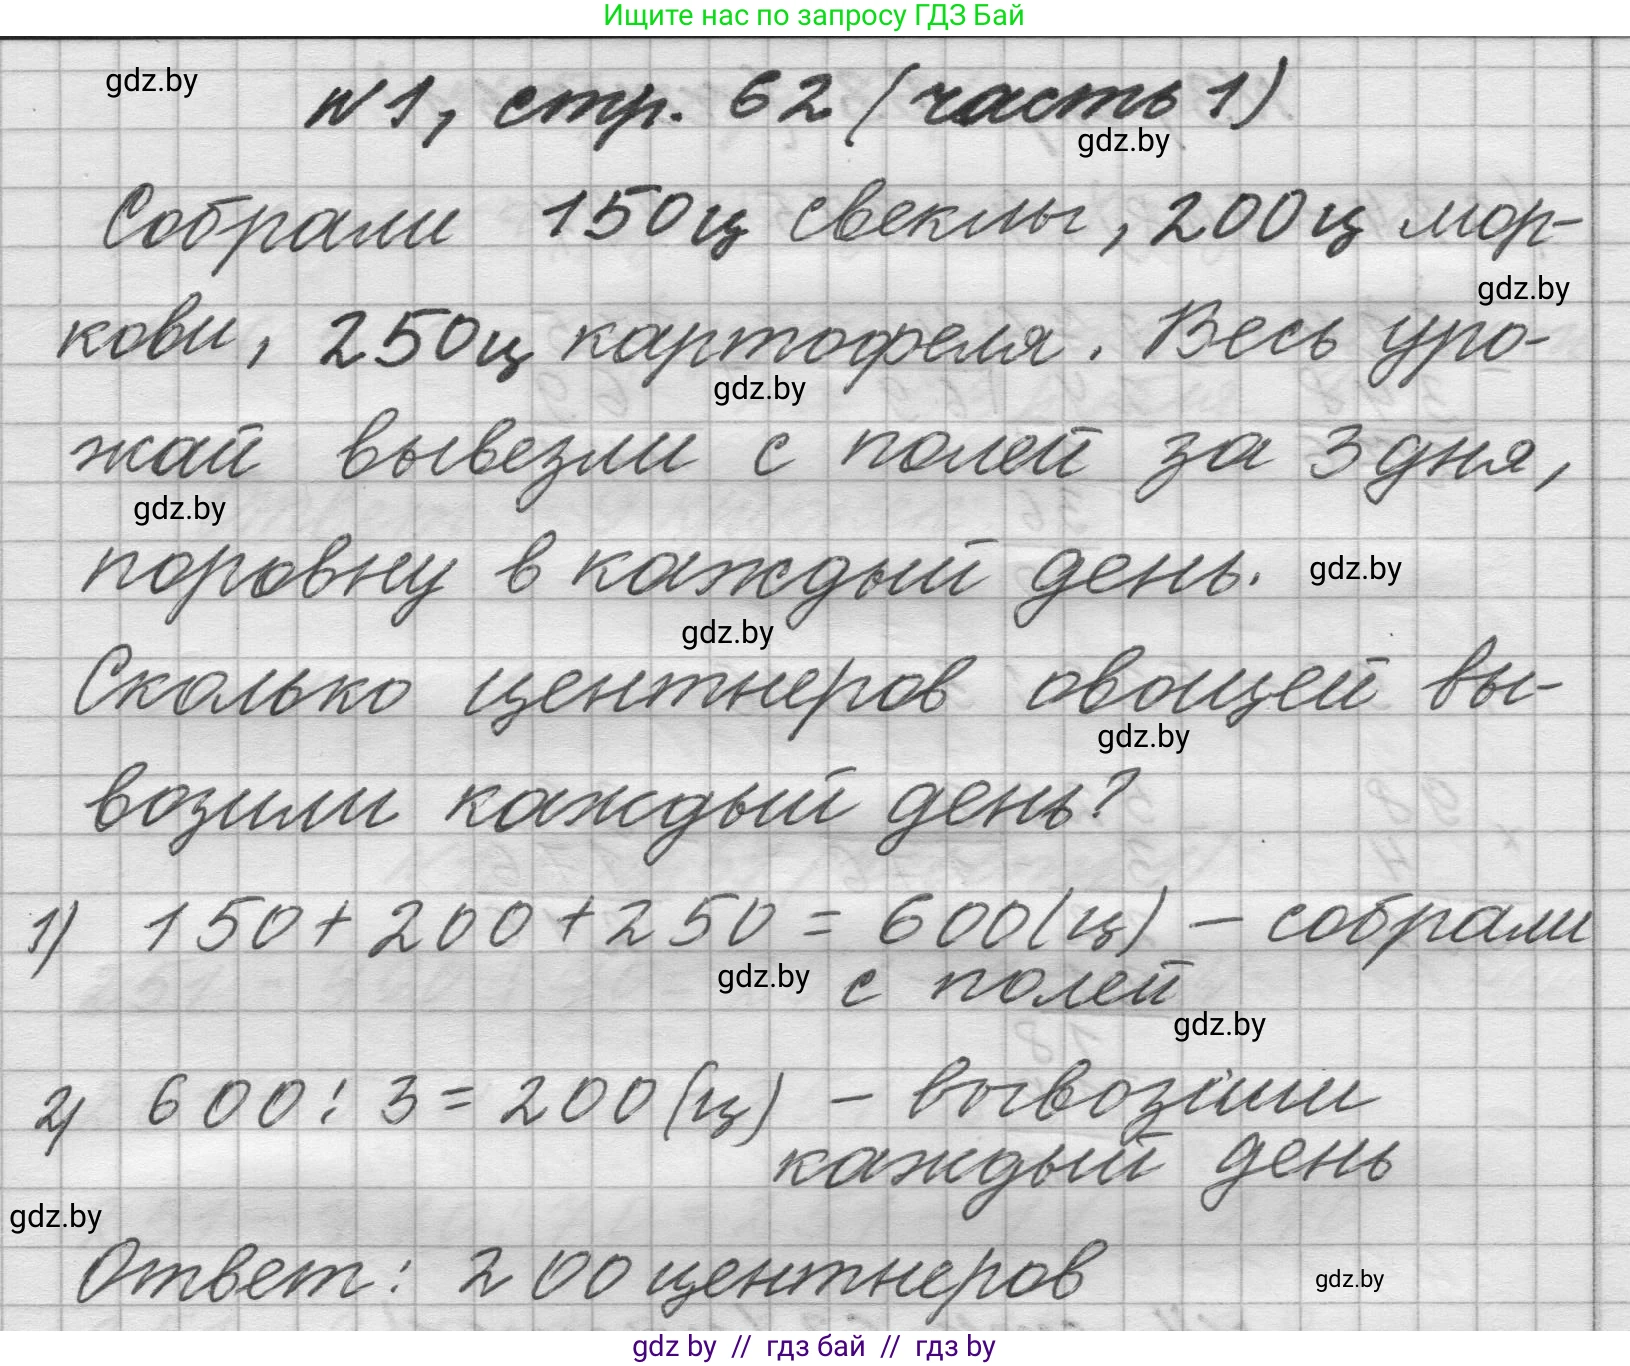 Ищите нас по запросу ГДЗ Бай
gdz.by
№1, стр. 62 (часть 1)
gdz.by
Собрали 150ц свеклы, 200ц мор-
gdz.by
кови, 250ц картофеля. Весь уро-
gdz.by
жай вывезли с полей за 3 дня,
gdz.by
поровну в каждый день.
gdz.by
gdz.by
Сколько центнеров овощей вы-
gdz.by
возили каждый день?
1) 150+200+250=600(ц) – собрали
gdz.by
с полей
gdz.by
2) 600:3=200(ц) – вывозили
каждый день
gdz.by
Ответ: 200 центнеров
gdz.by
gdz by // гдз бай // гдз by